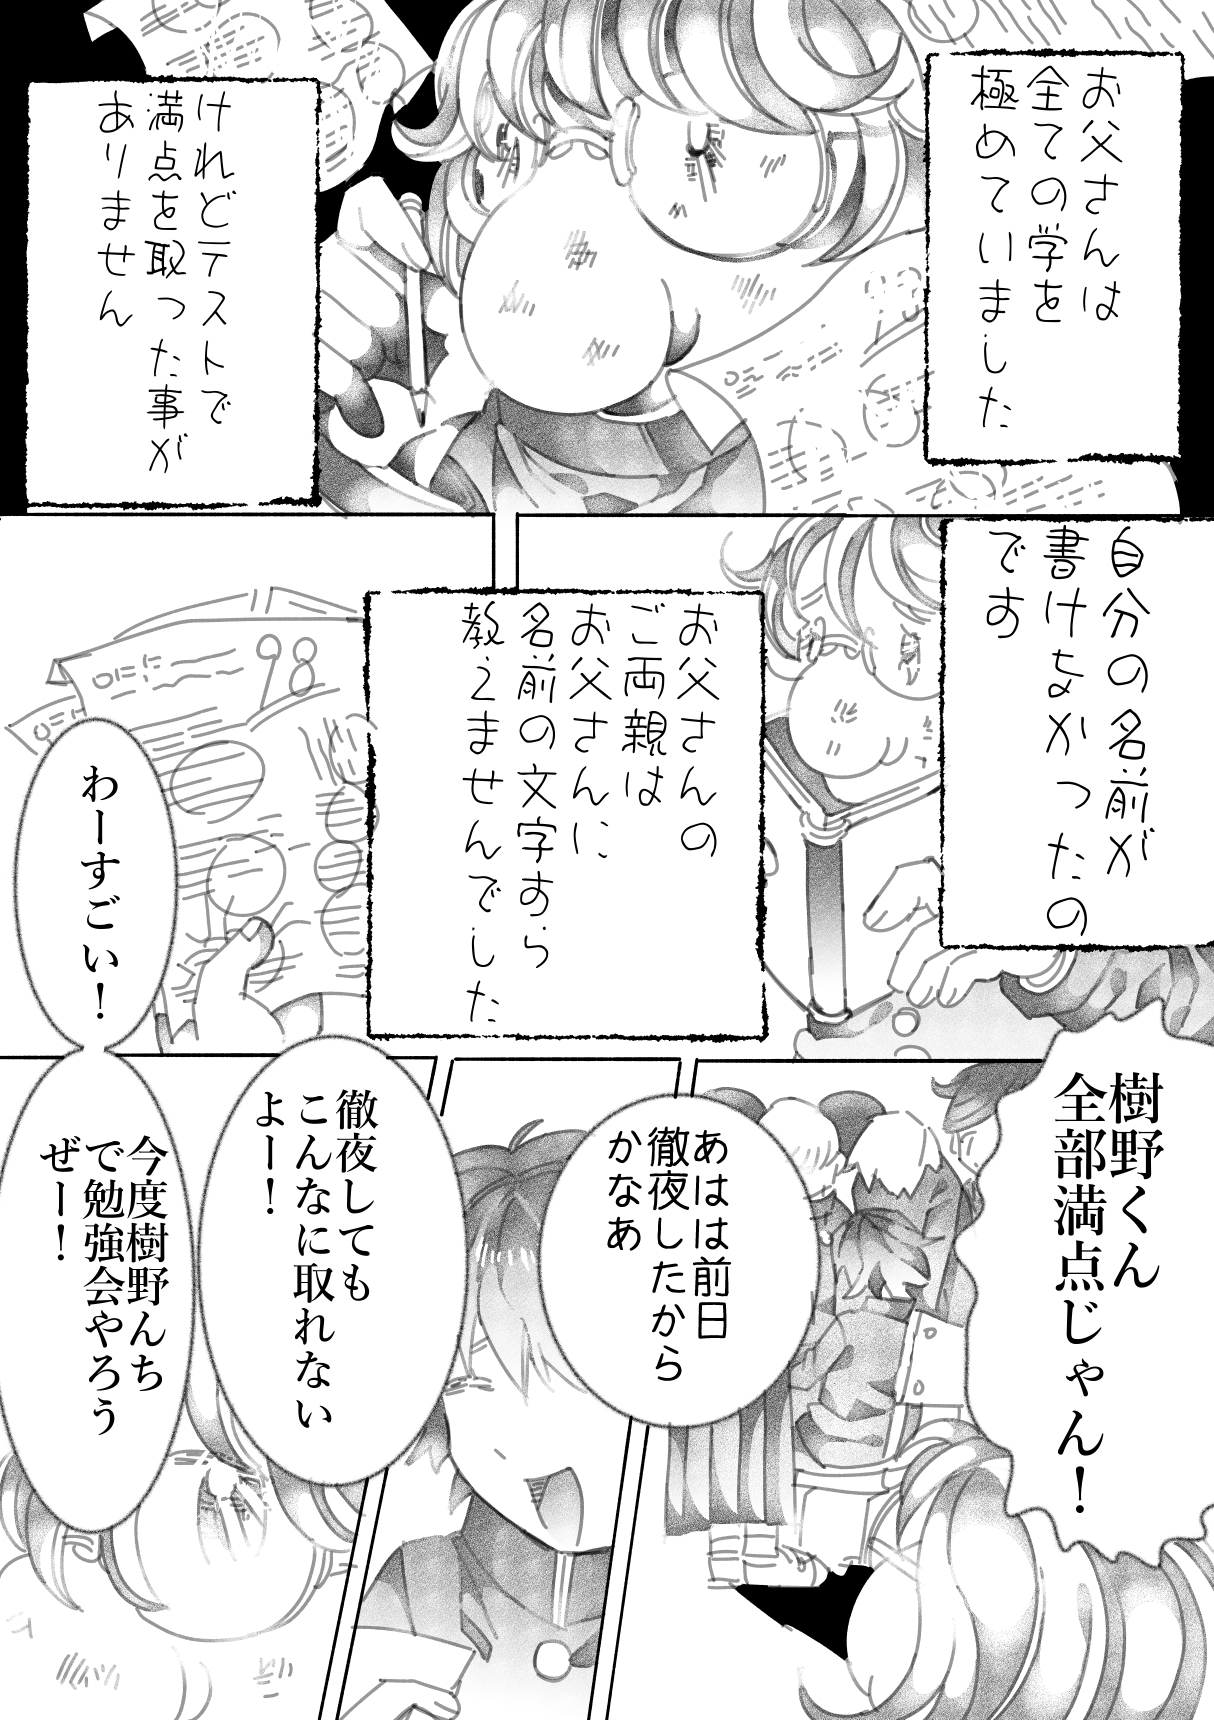 お父さんは
全ての学を
極めていました
けれどテストで
満点を取った事が
ありません
自分の名前が
書けなかったの
です
お父さんの
ご両親は
お父さんに
名前の文字すら
教えませんでした
98
わーすごい！
樹野くん
全部満点じゃん！
あはは前日
徹夜したから
かなあ
徹夜しても
こんなに取れない
よー！
今度樹野んち
で勉強会やろう
ぜー！